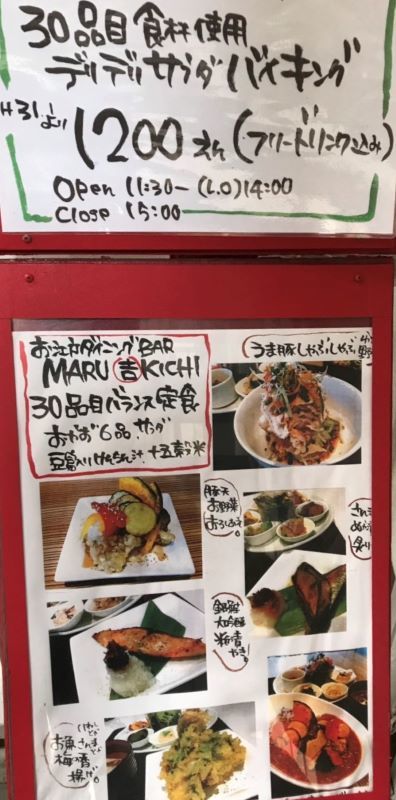 30品目食材使用
デリデリサラダバイキング
H31より
1200えん(フリードリンク込み)
Open 11:30-(L.O)14:00
Close 15:00
お江戸ダイニングBAR
MARU吉KICHI
30品目バランス定食
おかず6品、サラダ
豆腐入りけんちん汁、十五穀米
うま豚しゃぶしゃぶ
野
豚天
お野菜
おろしみぞれ
さんま
ぬか
炙り
銀鮭
大吟醸
粕香
やき。
お魚
梅の香
揚げ。